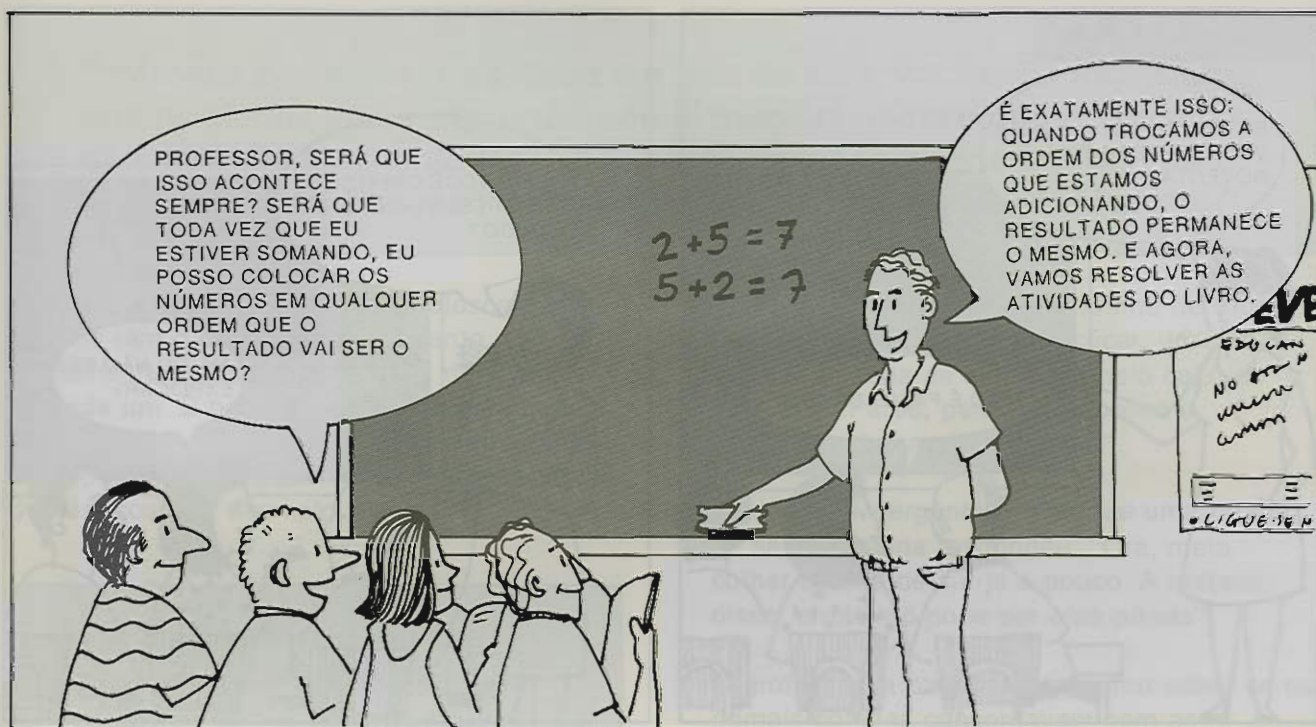 PROFESSOR, SERÁ QUE
ISSO ACONTECE
SEMPRE? SERÁ QUE
TODA VEZ QUE EU
ESTIVER SOMANDO, EU
POSSO COLOCAR OS
NÚMEROS EM QUALQUER
ORDEM QUE O
RESULTADO VAI SER O
MESMO?
2 + 5 = 7
5 + 2 = 7
É EXATAMENTE ISSO:
QUANDO TROCAMOS A
ORDEM DOS NÚMEROS
QUE ESTAMOS
ADICIONANDO, O
RESULTADO PERMANECE
O MESMO. E AGORA,
VAMOS RESOLVER AS
ATIVIDADES DO LIVRO.
EVE
EDUCAN
NO
• LIGUE-SE N